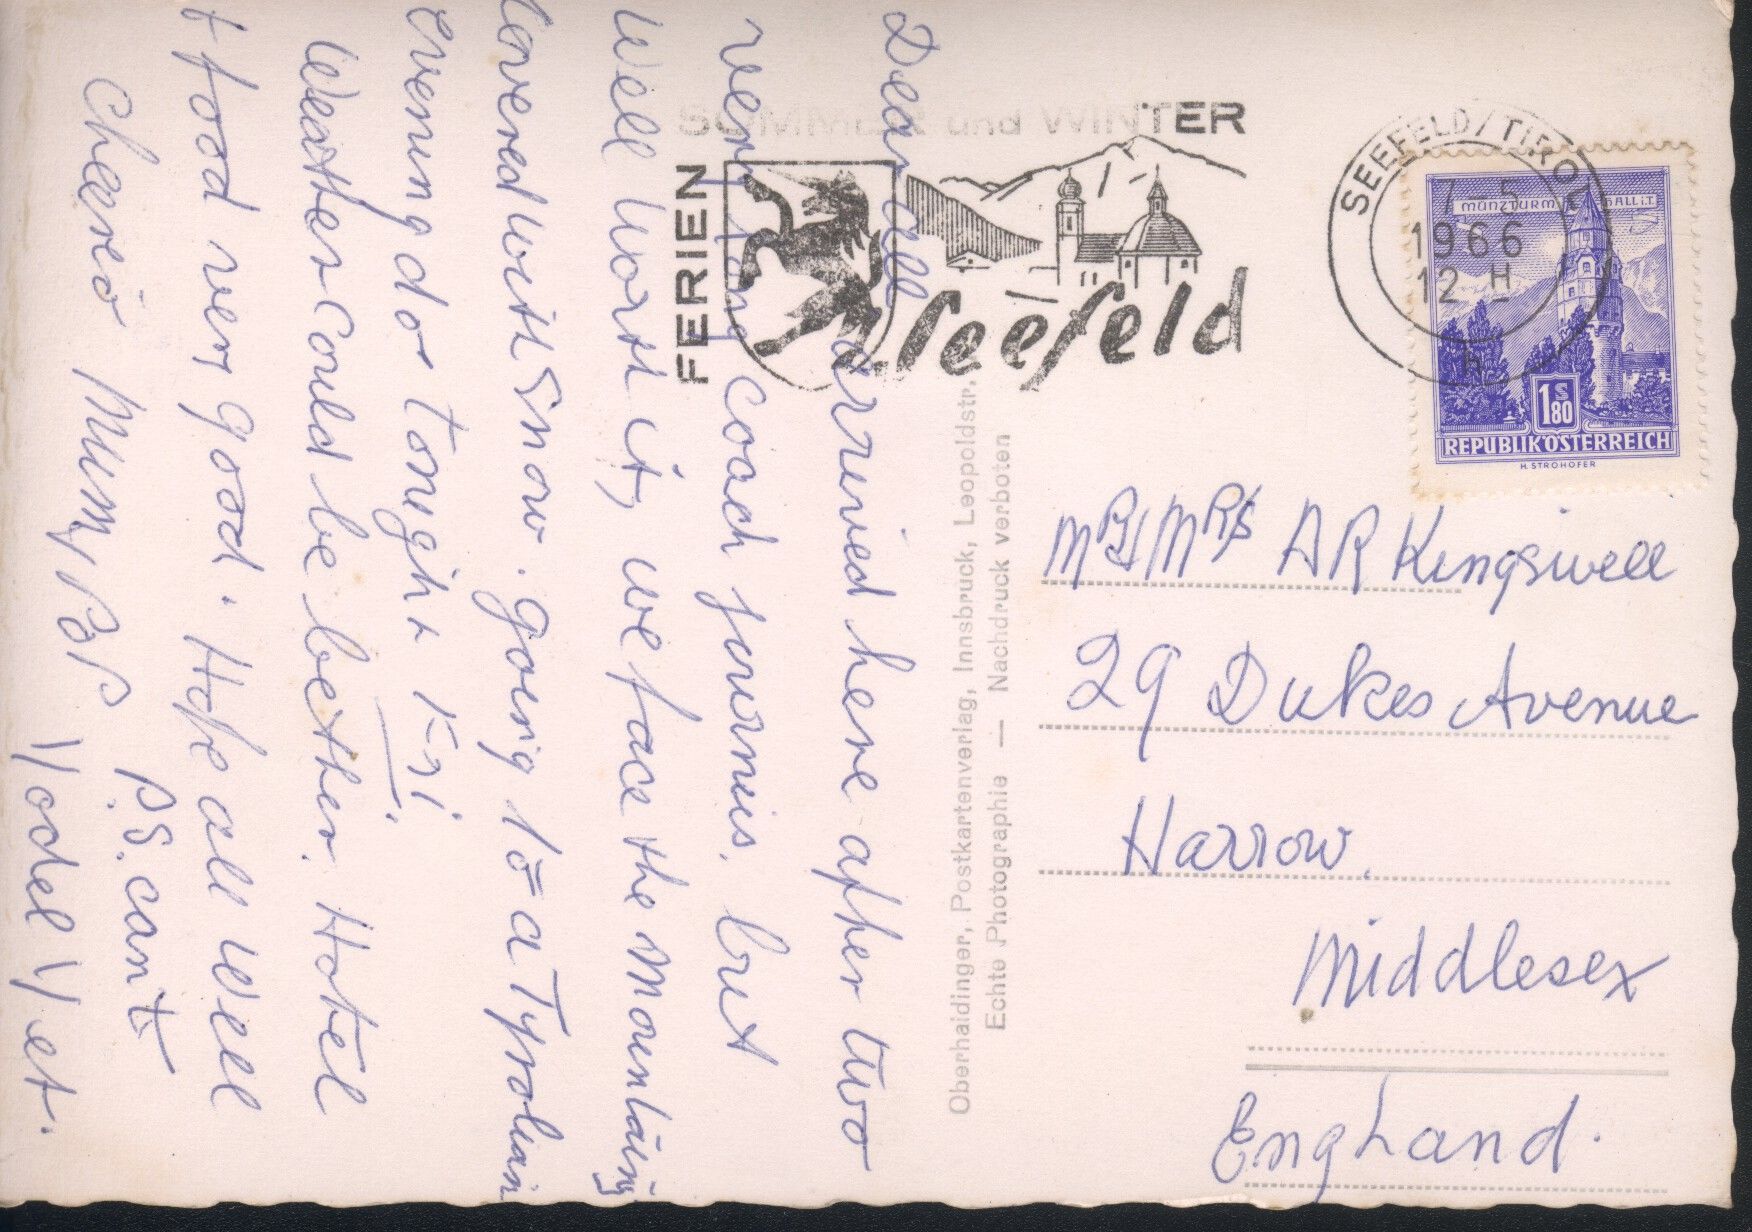 Dear all arrived here after two
very long coach journeis. but
Well Worth it, we face the mountains
Covered with Snow. going to a Tyrolian
evening do tonight Fri.
Weather could be better. Hotel
& food very good. Hope all well
cheerio Mum,
P.S. can't
Yodel Yet.
FERIEN
SOMMER und WINTER
Seefeld
SEEFELD/TIROL
7-5
1966
12 H
h
MÜNZTURM HALL i.T.
1 S 80
REPUBLIK ÖSTERREICH
H. STROHOFER
Oberhaidinger, Postkartenverlag, Innsbruck, Leopoldstr.
Echte Photographie — Nachdruck verboten
MR & MRS A R Kingswell
29 Dukes Avenue
Harrow.
Middlesex
England.